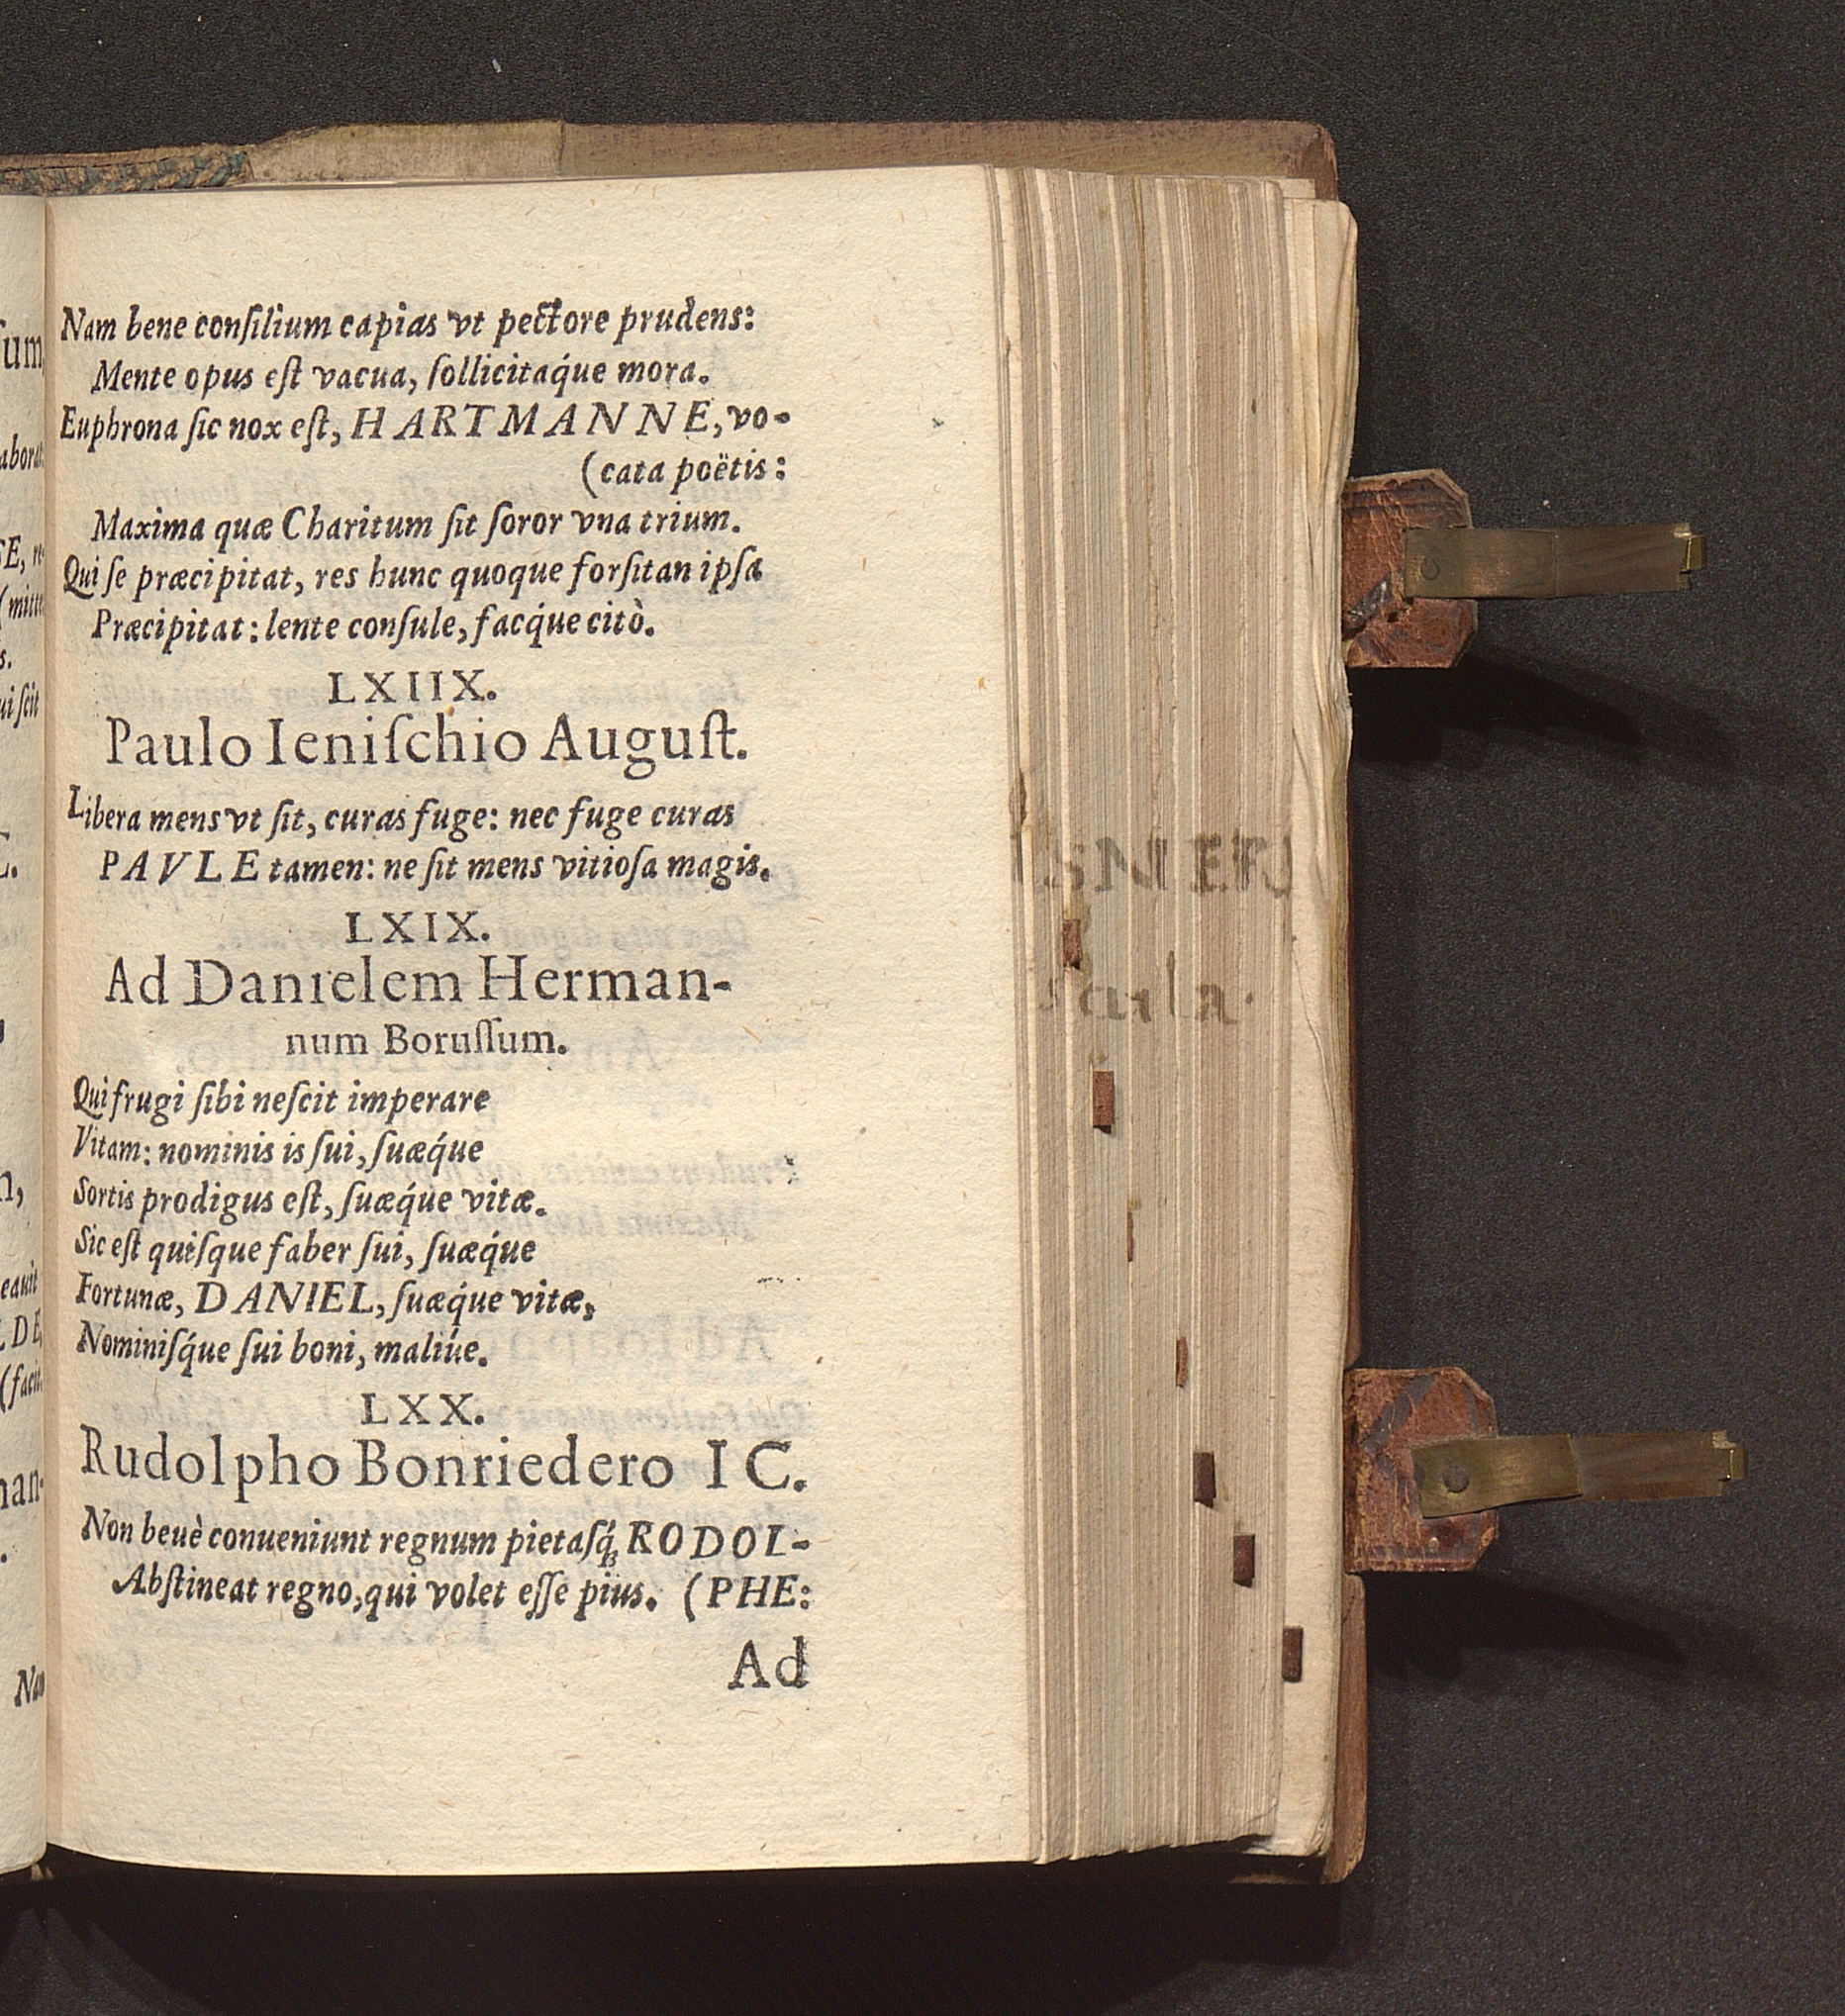 Nam bene conſilium capias vt pectore prudens:
Mente opus eſt vacua, ſollicitaq́ue mora.
Euphrona ſic nox eſt, HARTMANNE, vo-
(cata poëtis:
Maxima quæ Charitum ſit ſoror vna trium.
Qui ſe præcipitat, res hunc quoque forſitan ipſa
Præcipitat: lente conſule, facq́ue citò.
LXIIX.
Paulo Ieniſchio Auguſt.
Libera mens vt ſit, curas fuge: nec fuge curas
PAVLE tamen: ne ſit mens vitioſa magis.
LXIX.
Ad Danielem Herman-
num Boruſſum.
Qui frugi ſibi neſcit imperare
Vitam: nominis is ſui, ſuæq́ue
Sortis prodigus eſt, ſuæq́ue vitæ.
Sic eſt quiſque faber ſui, ſuæq́ue
Fortunæ, DANIEL, ſuæq́ue vitæ,
Nominiſq́ue ſui boni, maliúe.
LXX.
Rudolpho Bonriedero IC.
Non beuè conueniunt regnum pietaſq́ꝫ RODOL-
Abſtineat regno, qui volet eſſe pius. (PHE:
Ad